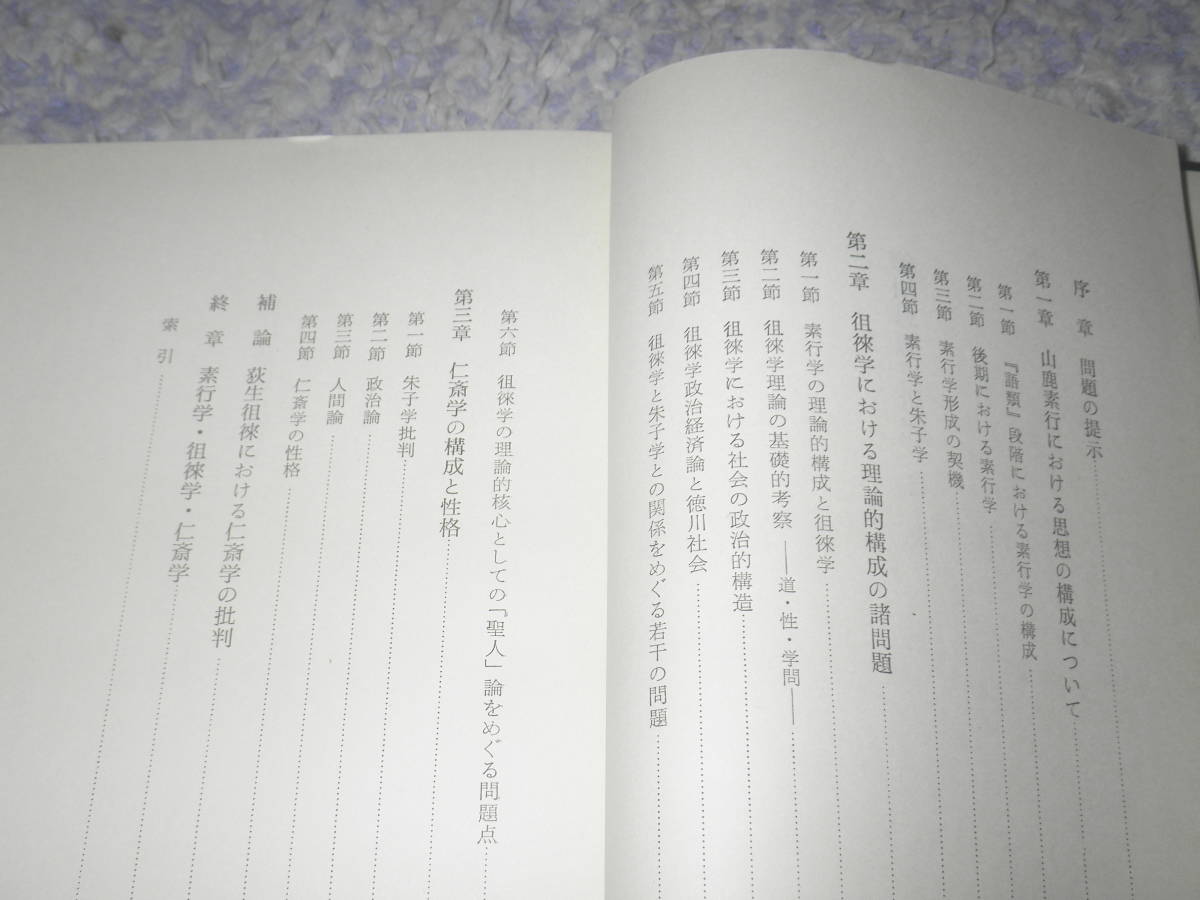 序章 問題の提示
第一章 山鹿素行における思想の構成について
第一節 『語類』段階における素行学の構成
第二節 後期における素行学
第三節 素行学形成の契機
第四節 素行学と朱子学
第二章 徂徠学における理論的構成の諸問題
第一節 素行学の理論的構成と徂徠学
第二節 徂徠学理論の基礎的考察 ――道・性・学問――
第三節 徂徠学における社会の政治的構造
第四節 徂徠学政治経済論と徳川社会
第五節 徂徠学と朱子学との関係をめぐる若干の問題
第六節 徂徠学の理論的核心としての「聖人」論をめぐる問題点
第三章 仁斎学の構成と性格
第一節 朱子学批判
第二節 政治論
第三節 人間論
第四節 仁斎学の性格
補論 荻生徂徠における仁斎学の批判
終章 素行学・徂徠学・仁斎学
索引